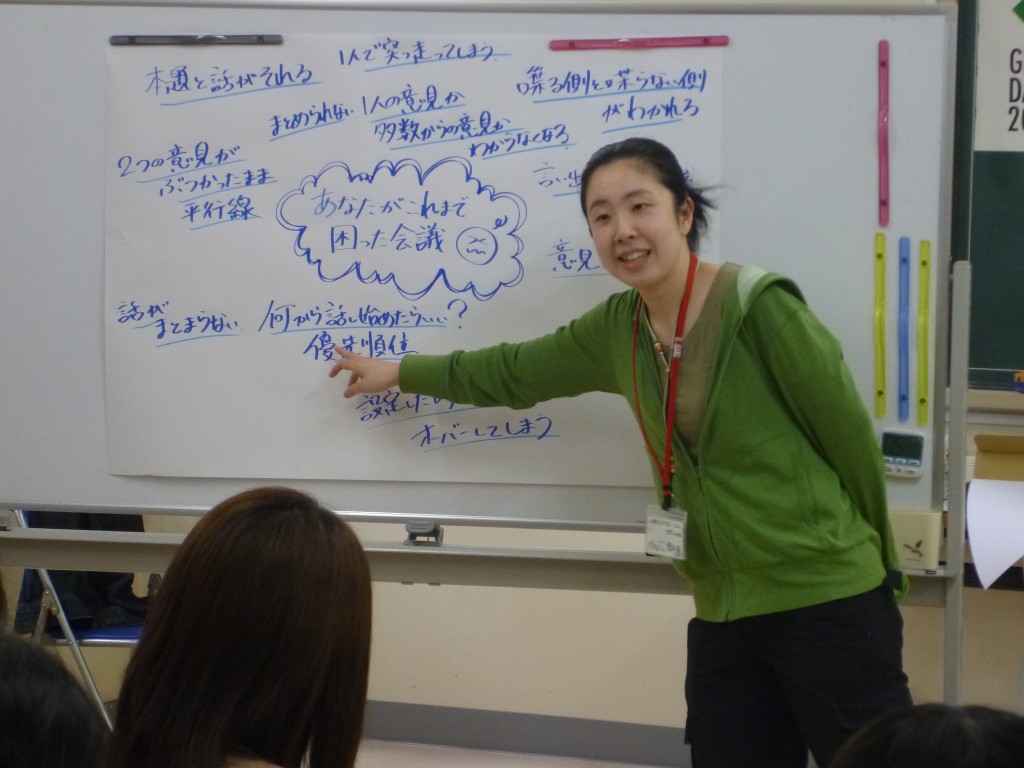 1人で突っ走ってしまう
本題と話がそれる
喋る側と喋らない側
がわかれる
まとめられない
1人の意見か
多数からの意見か
わからなくなる
2つの意見が
ぶつかったまま
平行線
言い出
あなたがこれまで
困った会議
意見
話が
まとまらない
何から話し始めたらいい?
優先順位
設定した
オーバーしてしまう
G
DA
20